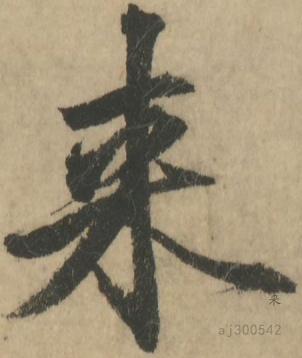 来
来
a j300542